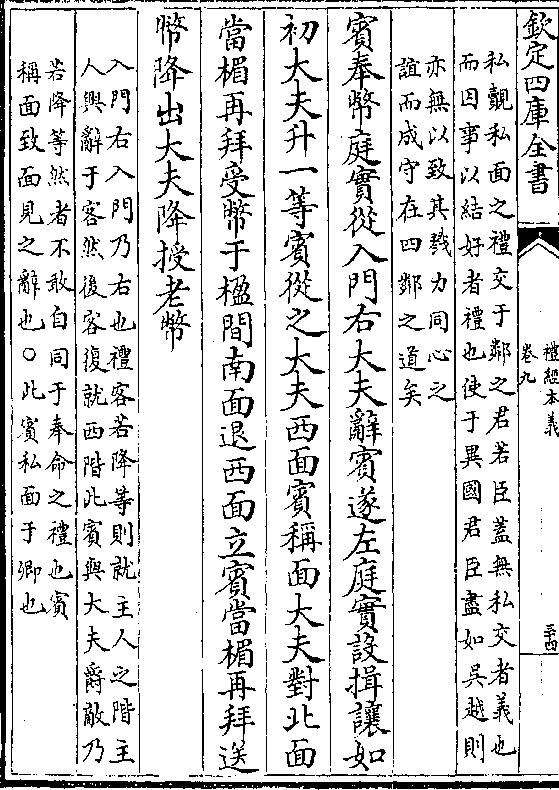 欽定四庫全書
禮經本義
卷九
三十四
私覿私面之禮交于鄰之君若臣蓋無私交者義也
而因事以結好者禮也使于異國君臣盡如吳越則
亦無以致其戮力同心之
誼而成守在四鄰之道矣
賓奉幣庭實從入門右大夫辭賓遂左庭實設揖讓如
初大夫升一等賓從之大夫西面賓稱面大夫對北面
當楣再拜受幣于楹間南面退西面立賓當楣再拜送
幣降出大夫降授老幣
入門右入門乃右也禮客若降等則就主人之階主
人與辭于客然後客復就西階此賓與大夫爵敵乃
若降等然者不敢自同于奉命之禮也賓
稱面致面見之辭也○此賓私面于卿也